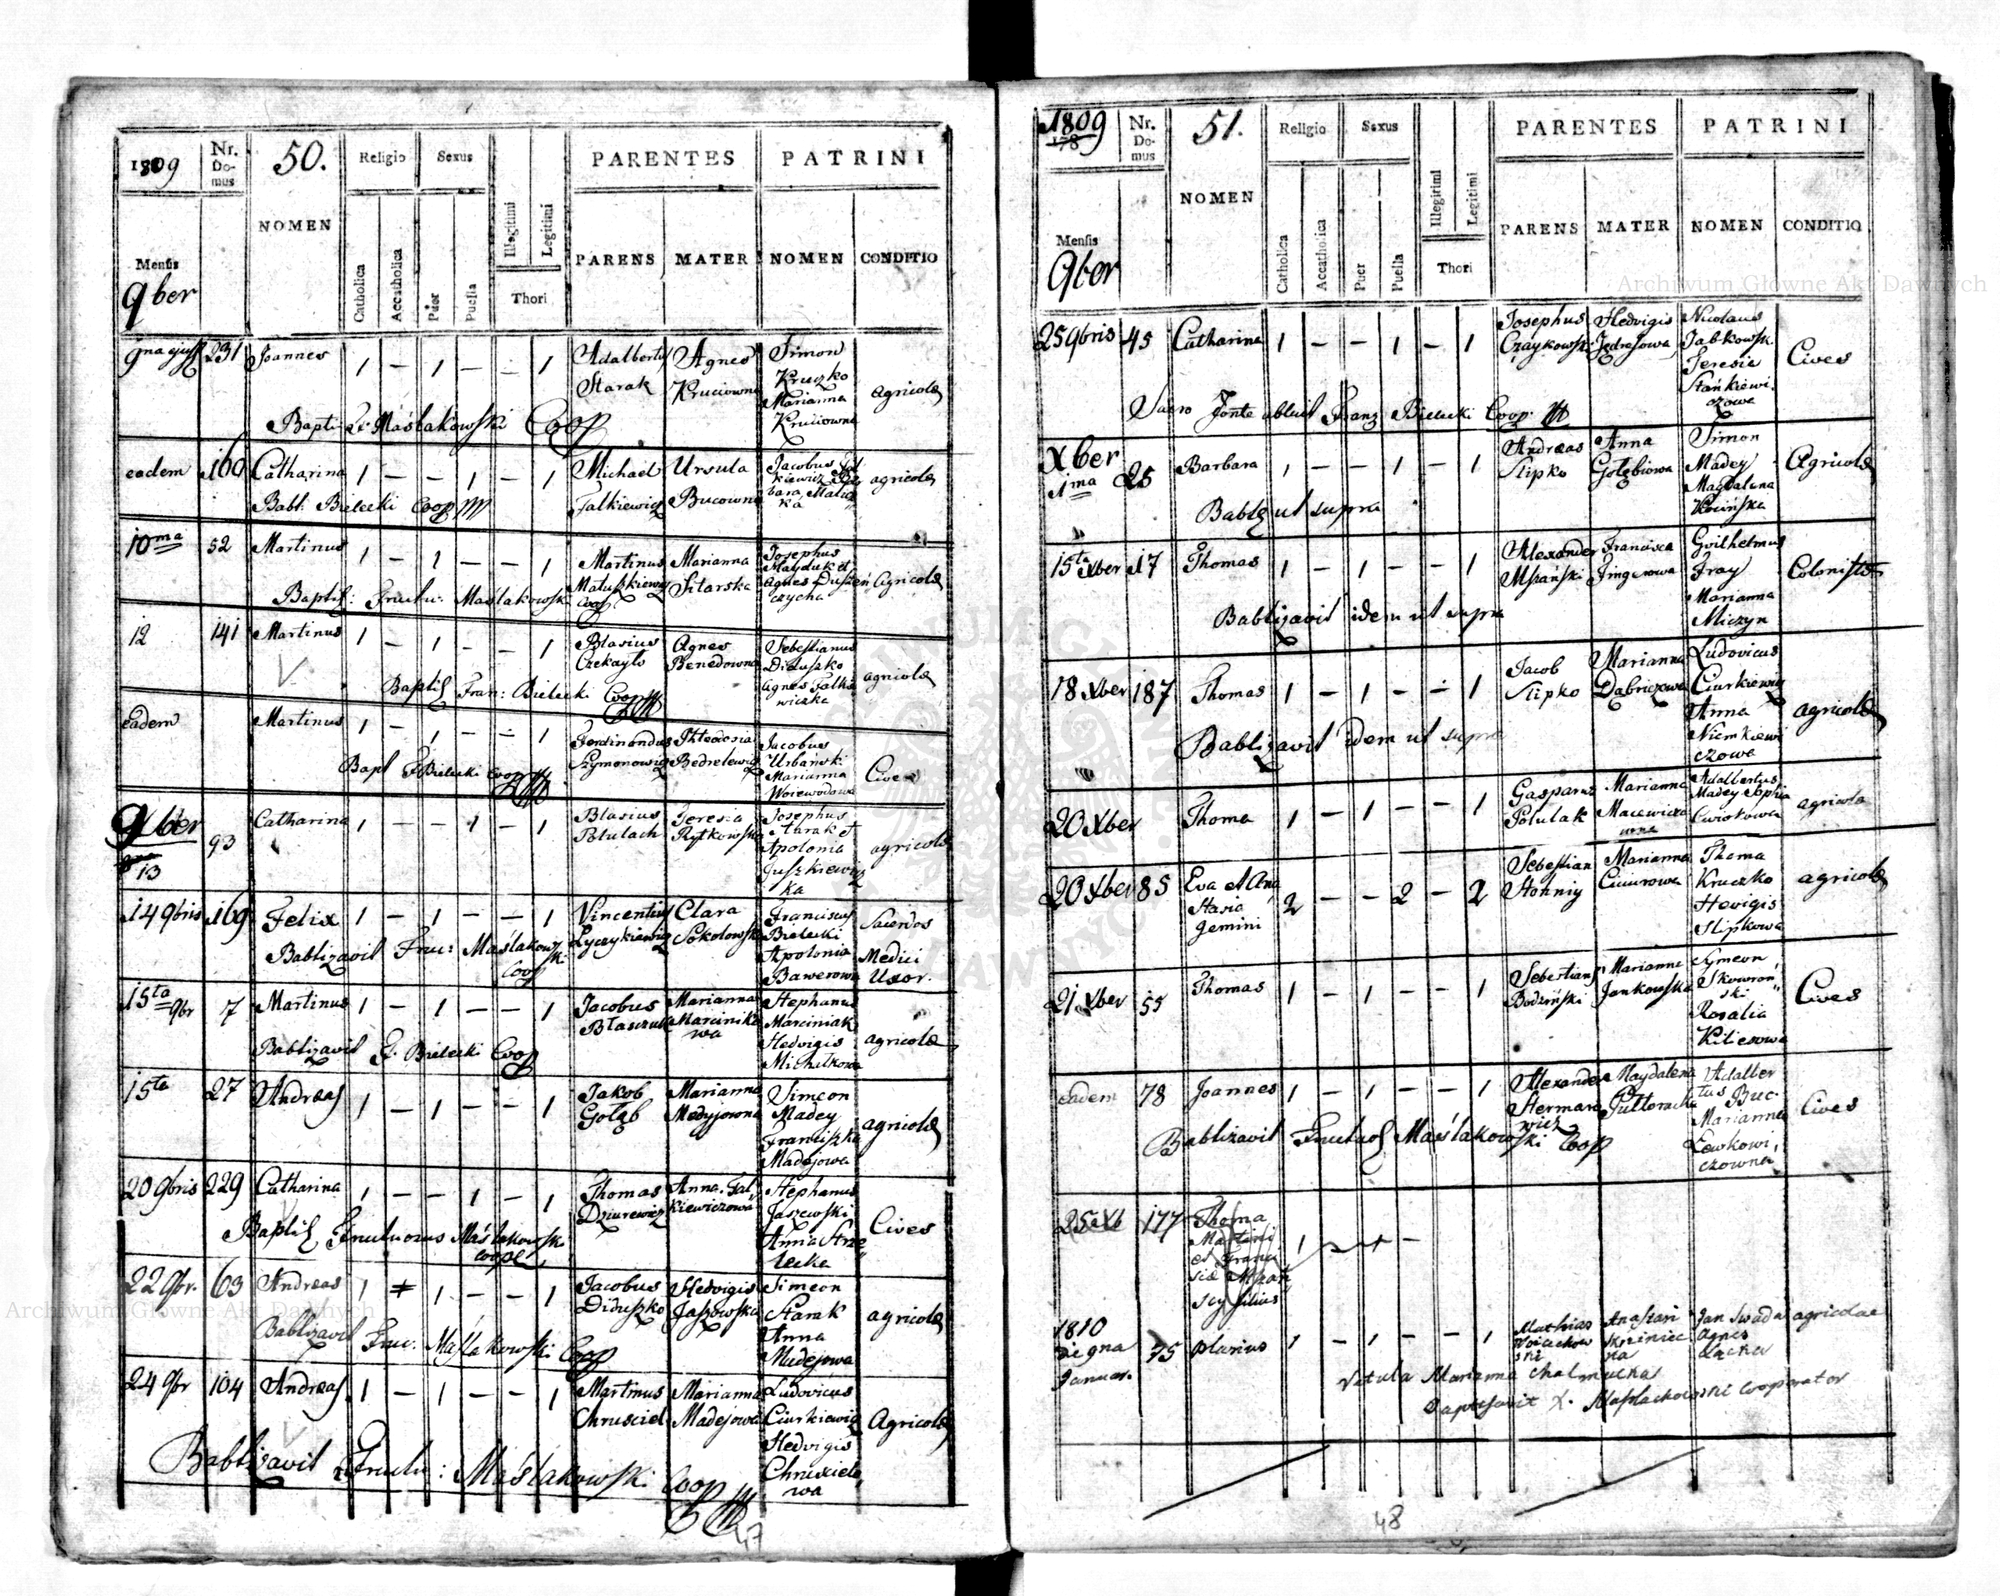 1809
Nr. Domus
50.
Religio
Sexus
PARENTES
PATRINI
NOMEN
Illegitimi
Legitimi
Mensis
9ber
Catholica
Accatholica
Puer
Puella
Thori
PARENS
MATER
NOMEN
CONDITIO
231 Joannes 1 – 1 – – 1 Adalbertus Agnes Simon
Starak Kruciowna Kruczko agricolæ
Marianna
Kruciowna
Maślakowski Coop
eadem 160 Catharina 1 – – 1 – 1 Michael Ursula Jacobus agricolæ
Falkiewicz Bucowna
Babt. Bielecki Coop
10ma 52 Martinus 1 – 1 – – 1 Martinus Marianna Josephus
Matuszkiewicz Sitarska Hayduk et Agricolæ
Agnes
Baptis: Fructu: Maślakowski Coop.
12 141 Martinus 1 – 1 – – 1 Blasius Agnes Sebestianus
Czekayło Benedowna Diduszko agricolæ
Agnes Falkiewiczka
Baptis Fran: Bielecki Coop
eadem Martinus 1 – 1 – – 1 Ferdinandus Phteodosia Jacobus
Szymonowicz Bedrelewicz Urbański Cives
Marianna
Woiewodowa
Bapt F Bielecki Coop
9ber
13 93 Catharina 1 – – 1 – 1 Blasius Teresia Josephus
Ptulach Rytkowska Starak et agricolæ
Apolonia
Juszkiewiczka
14 9bris 169 Felix 1 – 1 – – 1 Vincentius Clara Franciscus Sacerdos
Łyczykiewicz Sokołowska Bielecki
Apolonia Medici
Bawerowa Uxor.
Babtizavit Fruc: Maślakowski Coop
15ta 9br 7 Martinus 1 – 1 – – 1 Jacobus Marianna Stephanus
Błaszczuk Marcinikowa Marciniak
Hedvigis agricolæ
Michałkowa
Babtizavit F. Bielecki Coop
15ta 27 Andreas 1 – 1 – – 1 Jakob Marianna Simeon
Gołąb Medyjowna Madey agricolæ
Franciszka
Madejowa
20 9bris 229 Catharina 1 – – 1 – 1 Thomas Anna Falkiewiczowa Stephanus
Dziurewicz Jaszewski Cives
Anna Strzelecka
Baptis Fructuosus Maślakowski Coope
22 9br. 63 Andreas 1 – 1 – – 1 Jacobus Hedvigis Simeon
Diduszko Jaszowska Starak agricolæ
Anna
Madejowa
Babtizavit Fruc: Maślakowski Coop
24 9br 104 Andreas 1 – 1 – – 1 Martinus Marianna Ludovicus
Chrusciel Madejowa Ciurkiewicz Agricolæ
Hedvigis
Chruscielowa
Babtizavit Fructu: Maślakowski Coop
47
1809
Nr. Domus
51.
Religio
Sexus
PARENTES
PATRINI
NOMEN
Illegitimi
Legitimi
Mensis
9ber
Catholica
Accatholica
Puer
Puella
Thori
PARENS
MATER
NOMEN
CONDITIO
25 9bris 45 Catharina 1 – – 1 – 1 Josephus Hedvigis Nicolaus
Czaykowski Jędrasowa Jabkowski Cives
Teresia
Stańkiewiczowa
Sacro Fonte abluit Franz Bielecki Coop.
Xber
1ma 25 Barbara 1 – – 1 – 1 Andreas Anna Simon
Slipko Gołębiowa Madey Agricolæ
Magdalena
Babtz ut supra
15ta Xber 17 Thomas 1 – 1 – – 1 Alexander Francisca Guilhelmus
Mszański Fingerowa Fray Colonistæ
Marianna
Miczyn
Babtizavit idem ut supra
18 Xber 187 Thomas 1 – 1 – – 1 Jacob Marianna Ludovicus
Slipko Dąbrizowa Ciurkiewicz agricolæ
Anna
Niemkiewiczowa
Babtizavit idem ut supra
20 Xber Thoma 1 – 1 – – 1 Gasparus Marianna Adalbertus
Polulak Macewiczowna Madey Sophia agricola
Cwiotowa
20 Xber 85 Eva et Anastasia 2 – – 2 – 2 Sebestian Marianna Thoma
gemini Stohniy Ciuiurowa Kruczko agricolæ
Hevigis
Slipkowa
21 Xber 55 Thomas 1 – 1 – – 1 Sebestianus Marianna Symeon
Bodziński Jankowska Skowroński Cives
Rosalia
Kiliesowa
eadem 78 Joannes 1 – 1 – – 1 Alexander Magdalena Adalbertus Buc.
Hermanowicz Pułtoracka Marianna Cives
Lewkowiczowna
Babtizavit Fructuos Maślakowski Coop
25 Xb 177 Thoma
Martini
et Francisiæ
filius
1810
die gna 75 plarius 1 – 1 – – 1 Mathias Anastazi Jan Swada agricolae
Januar. Woiciechowski Skriniecka Agnes
Łacka
Vetula Marianna Chalmucka
Baptisavit X. Maslachowski Cooperator
48
Archiwum Główne Akt Dawnych
Archiwum Główne Akt Dawnych